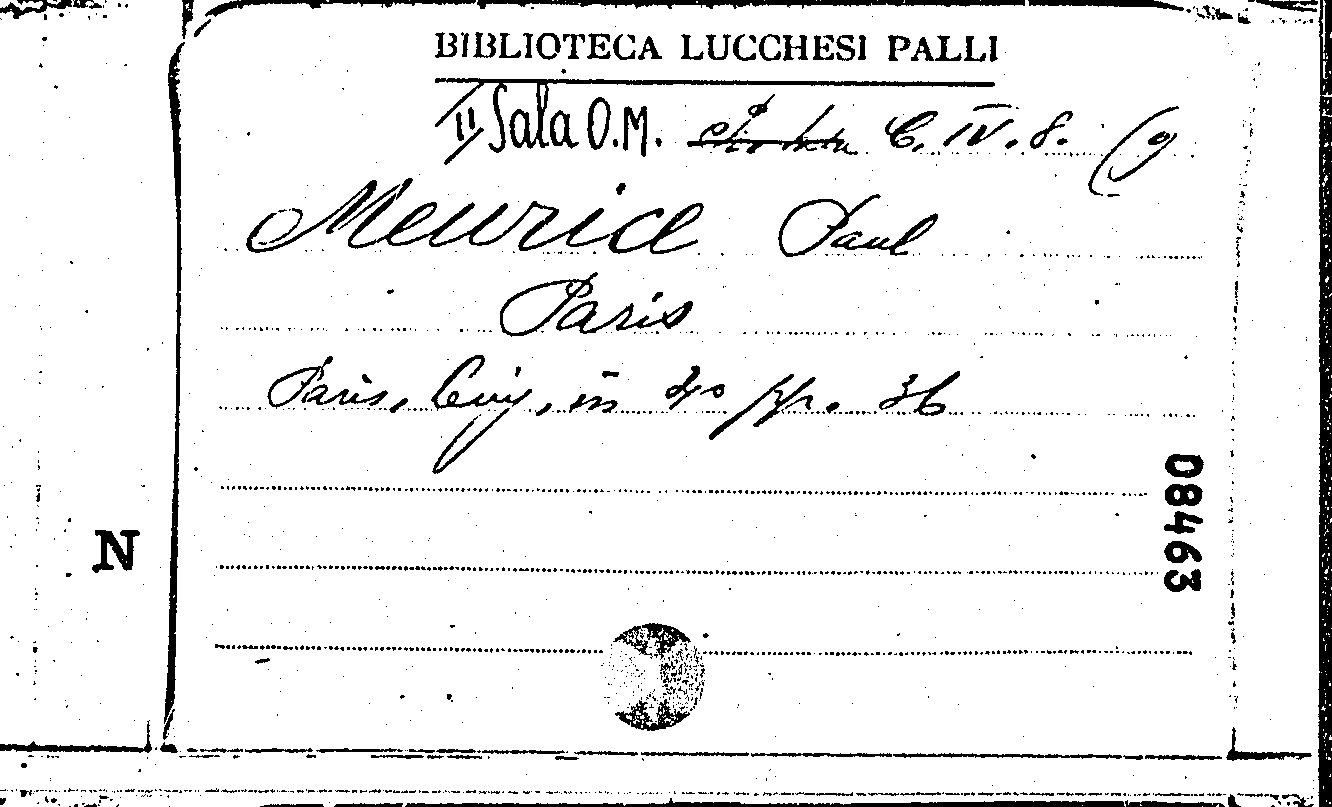 BIBLIOTECA LUCCHESI PALLI
II Sala O.M. C. IV. 8. (9
Meurice Paul
Paris
Paris, Levy, in 4° pp. 36
N
08463